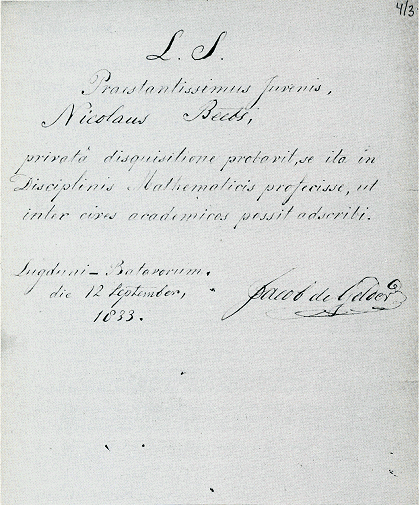 4/3
L. S.
Praestantissimus Juvenis,
Nicolaus Beets,
privatâ disquisitione probavit, se ita in
Disciplinis Mathematicis profecisse, ut
inter cives academicos possit adscribi.
Lugduni-Batavorum.
die 12 September,
1833.
Jacob de Gelder